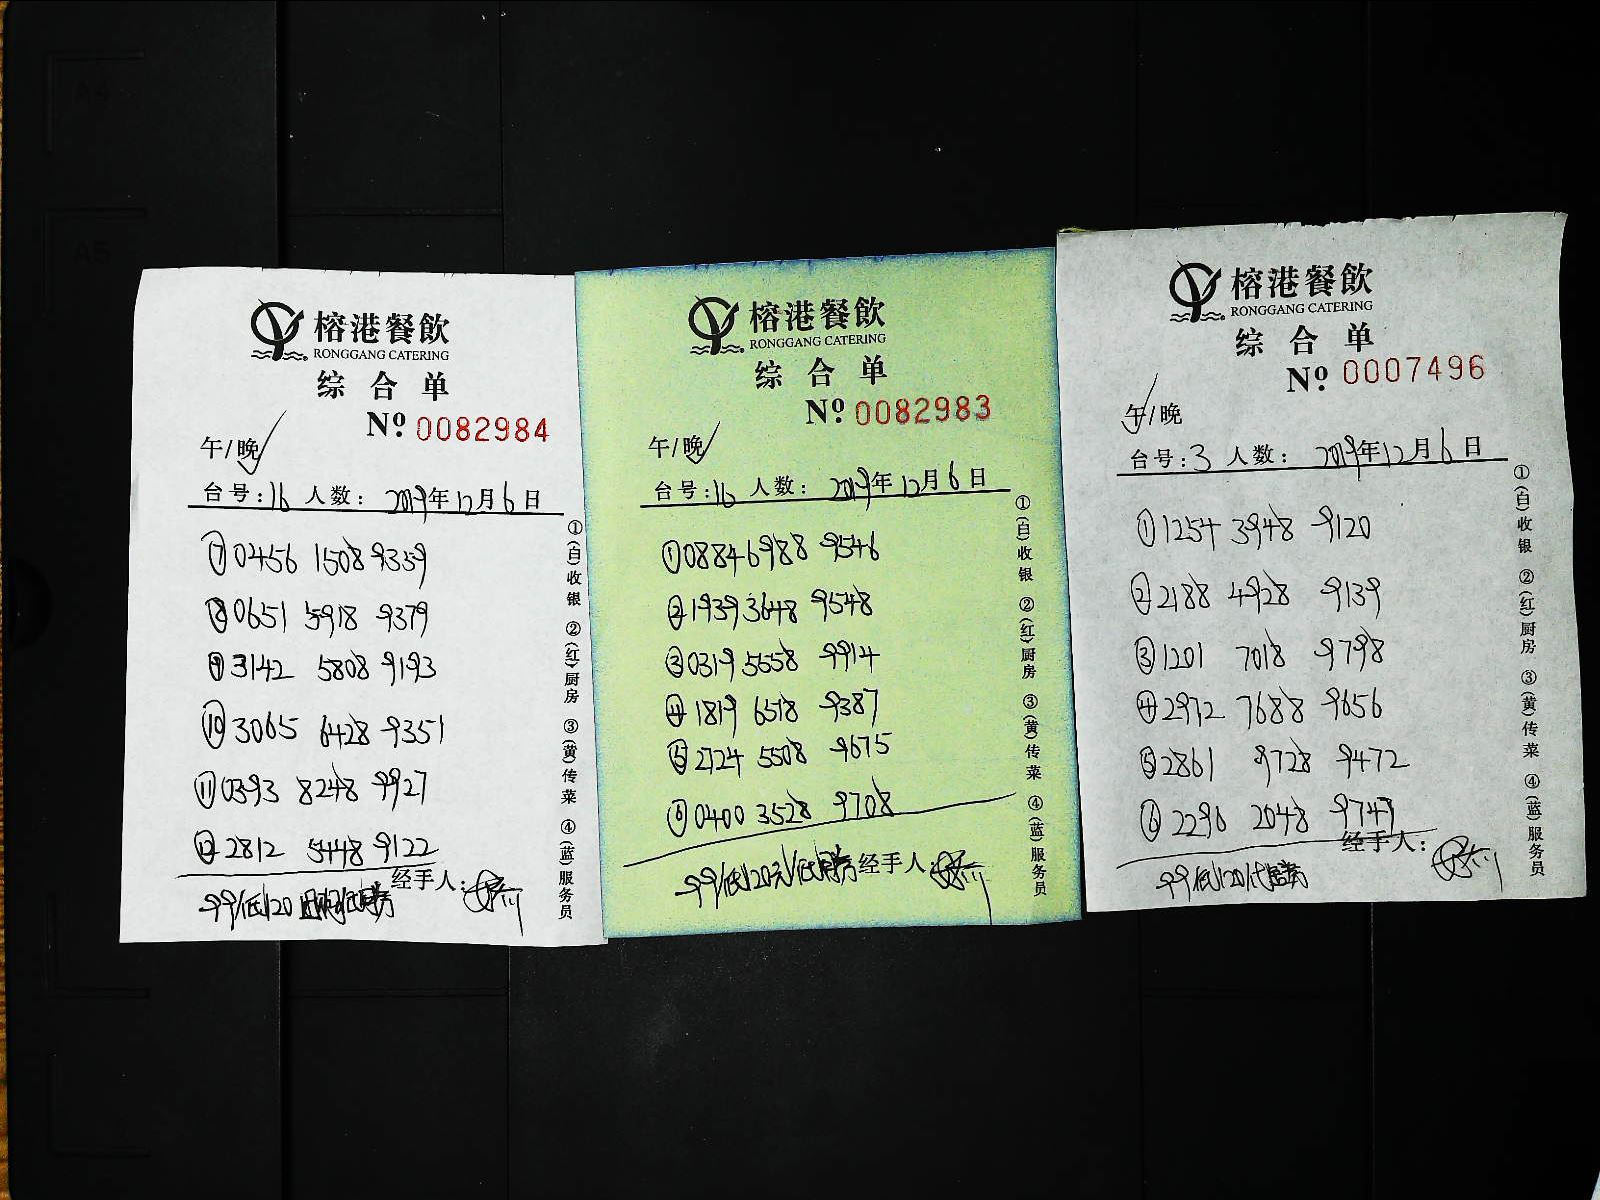 榕港餐飲
RONGGANG CATERING
综合单
Nº 0082984
午/晚
台号:16 人数: 2019年12月6日
⑦0456 1508 9359
⑧0651 5918 9379
⑨3142 5808 9193
⑩3065 6428 9351
⑪0393 8248 9927
⑫2812 5448 9122
经手人:
99/低120
①(白)收银 ②(红)厨房 ③(黄)传菜 ④(蓝)服务员
榕港餐飲
RONGGANG CATERING
综合单
Nº 0082983
午/晚
台号:16 人数: 2019年12月6日
①0884 6988 9546
②1939 3648 9548
③0319 5558 9914
④1819 6518 9387
⑤2724 5508 9675
⑥0400 3528 9708
99/低120元/代用券 经手人:
①(白)收银 ②(红)厨房 ③(黄)传菜 ④(蓝)服务员
榕港餐飲
RONGGANG CATERING
综合单
Nº 0007496
午/晚
台号:3 人数: 2019年12月6日
①1254 3948 9120
②2188 4928 9139
③1201 7018 9798
④2972 7688 9656
⑤2861 9728 9472
⑥2296 2048 9747
经手人:
99/低120代用券
①(白)收银 ②(红)厨房 ③(黄)传菜 ④(蓝)服务员
A4
A5